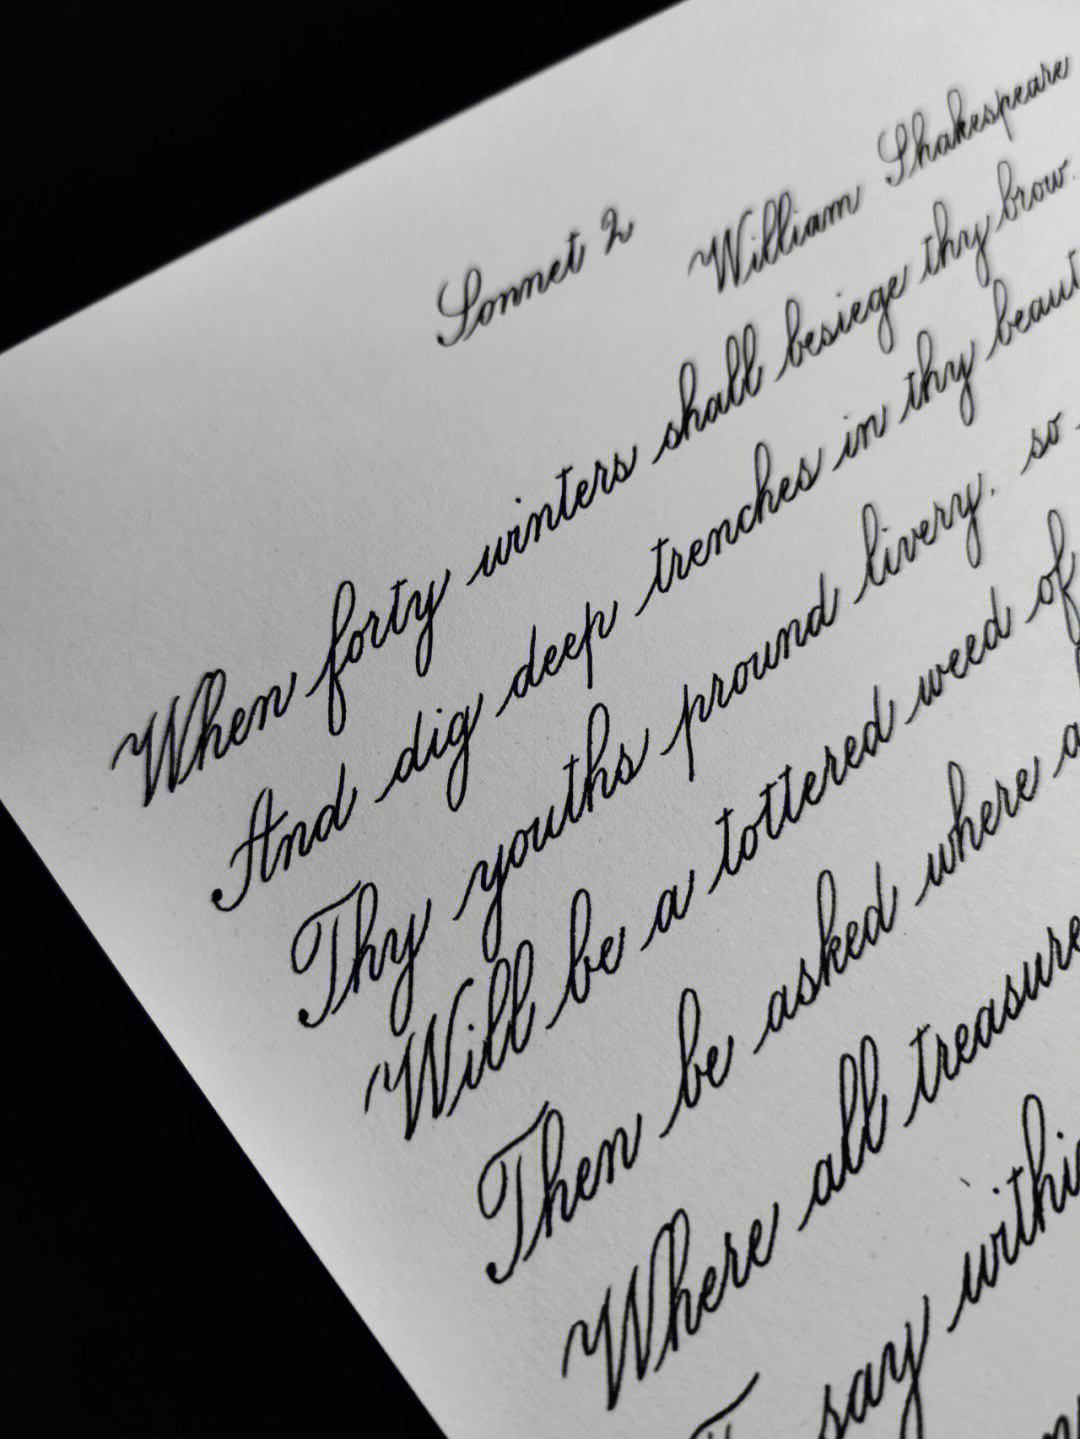 Sonnet 2 William Shakespeare
When forty winters shall besiege thy brow.
And dig deep trenches in thy beaut
Thy youths pround livery, so
Will be a tottered weed of
Then be asked where a
Where all treasure
say withi